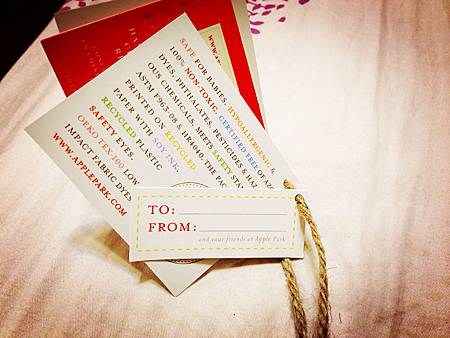 SAFE FOR BABIES. HYPOALLERGENIC &
100% NON-TOXIC. CERTIFIED FREE OF AZO
DYES, PHTHALATES, PESTICIDES & HAZ
OUS CHEMICALS, MEETS SAFETY STAN
ASTM F963-08 & HR4040. THE PAC
PRINTED ON RECYCLED
PAPER WITH SOY INK.
RECYCLED PLASTIC
SAFETY EYES.
OEKO TEX-100, LOW
IMPACT FABRIC DYES
WWW.APPLEPARK.COM
TO:
FROM:
and your friends at Apple Park